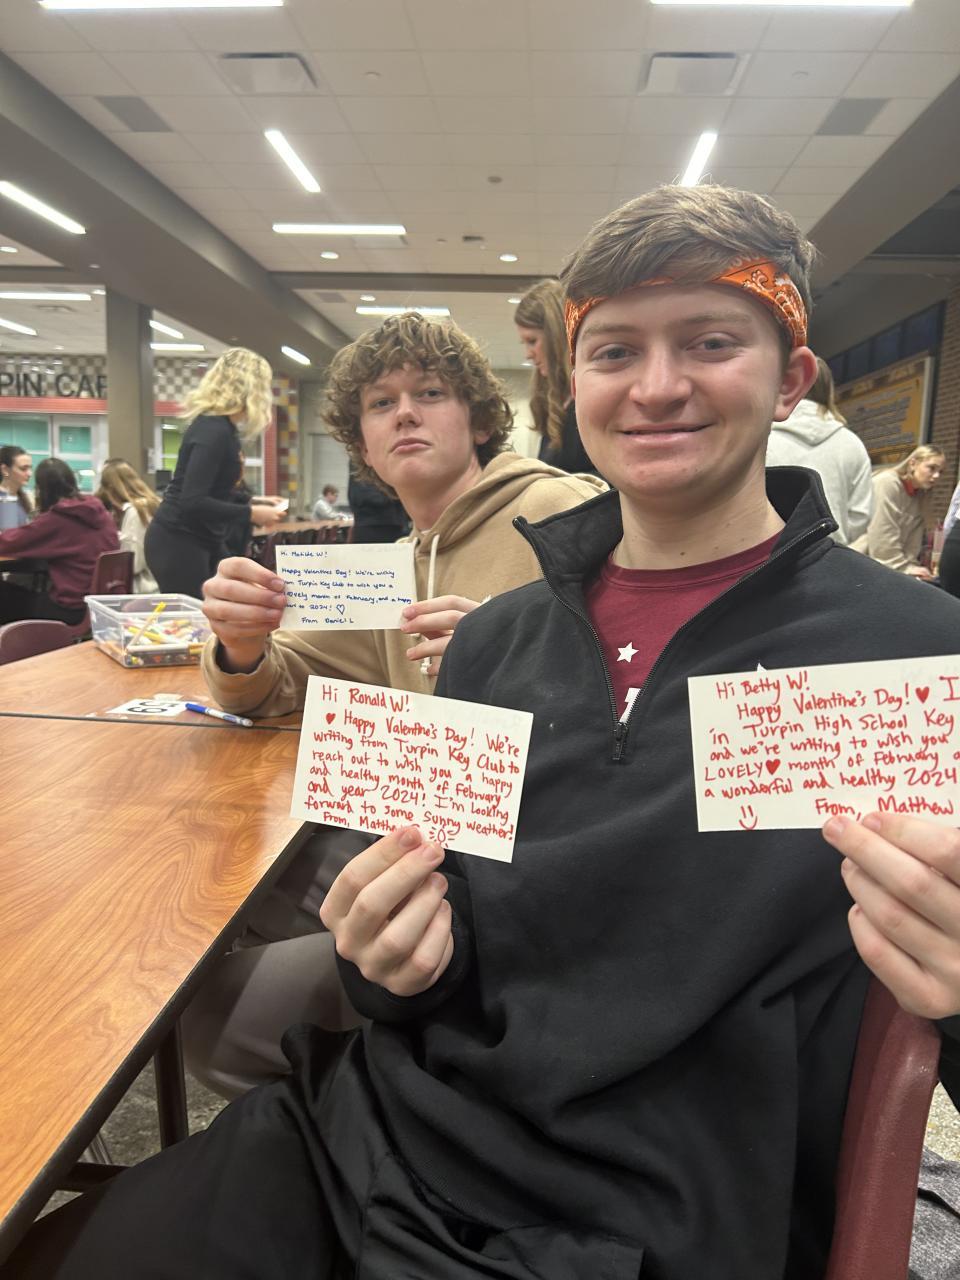 PIN CAF
Hi Matilda W!
Happy Valentines Day! We're writing
from Turpin Key Club to wish you a
lovely month of February, and a happy
start to 2024! ♡
From Daniel L
Hi Ronald W!
♥ Happy Valentine's Day! We're
writing from Turpin Key Club to
reach out to wish you a happy
and healthy month of February
and year 2024! I'm looking
forward to some sunny weather!
From, Matthew
Hi Betty W!
Happy Valentine's Day! ♥ I
in Turpin High School Key
and we're writing to wish you
LOVELY♥ month of February a
a wonderful and healthy 2024
From, Matthew